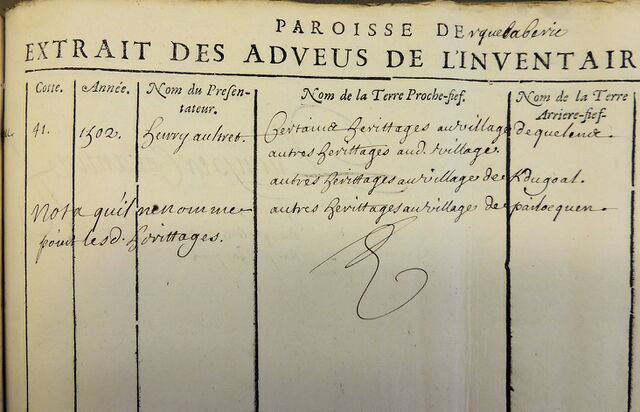 PAROISSE DE Erguegaberic
EXTRAIT DES ADVEUS DE L'INVENTAIR
Cotte. Année. Nom du Presen-tateur. Nom de la Terre Proche-fief. Nom de la Terre Arriere-fief.
41. 1502. henry autret. Certains herittages au village de quelenec.
autres herittages aud. village.
autres herittages au village de Kdugoal.
Nota qu'il ne nomme autres herittages au village de parlocquen.
point lesd. herittages.